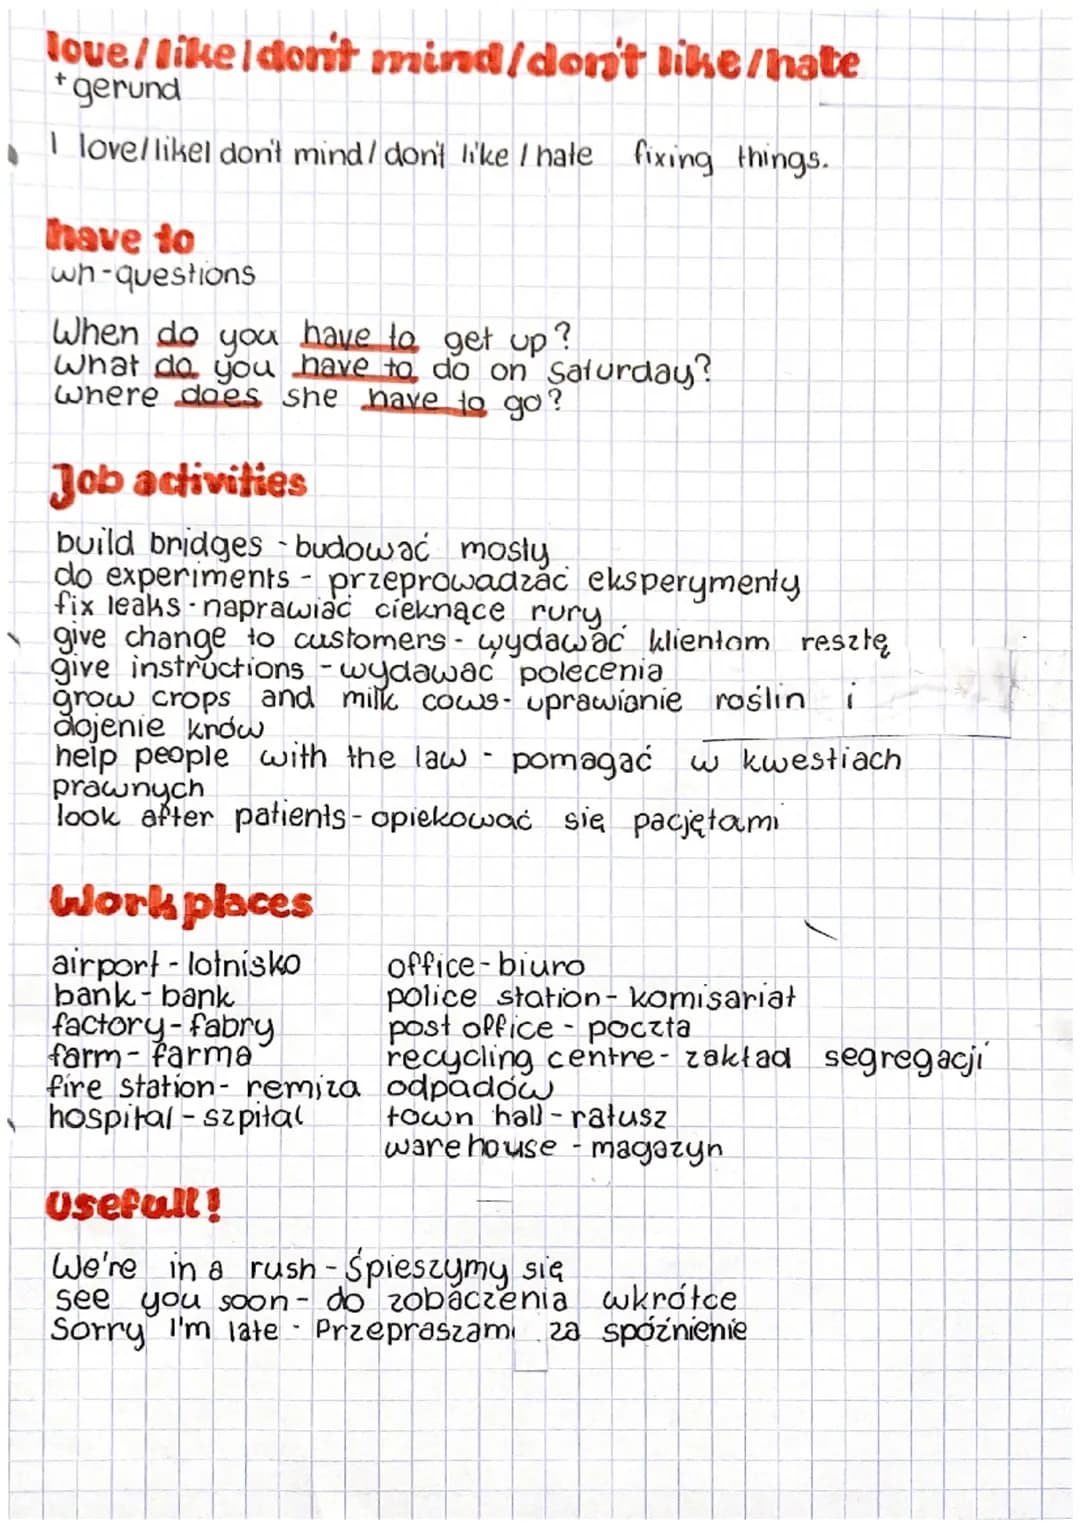 love/like/don't mind/don't like/hate
+ gerund
I love/like/don't mind/don't like/hate fixing things.
have to
wh-questions
When do you have to get up?
What do you have to do on Saturday?
Where does she have to go?
Job activities
build bridges - budować mosty
do experiments - przeprowadzać eksperymenty
fix leaks - naprawiać cieknące rury
give change to customers - wydawać klientom resztę
give instructions - wydawać polecenia
grow crops and milk cows - uprawianie roślin i
dojenie krów
help people with the law - pomagać w kwestiach
prawnych
look after patients - opiekować się pacjętami
Work places
airport - lotnisko
bank - bank
factory - fabry
farm - farma
fire station - remiza
hospital - szpital
office - biuro
police station - komisariat
post office - poczta
recycling centre - zakład segregacji
odpadów
town hall - ratusz
warehouse - magazyn
Usefull!
We're in a rush - Śpieszymy się
see you soon - do zobaczenia wkrótce
Sorry I'm late - Przepraszam za spóźnienie